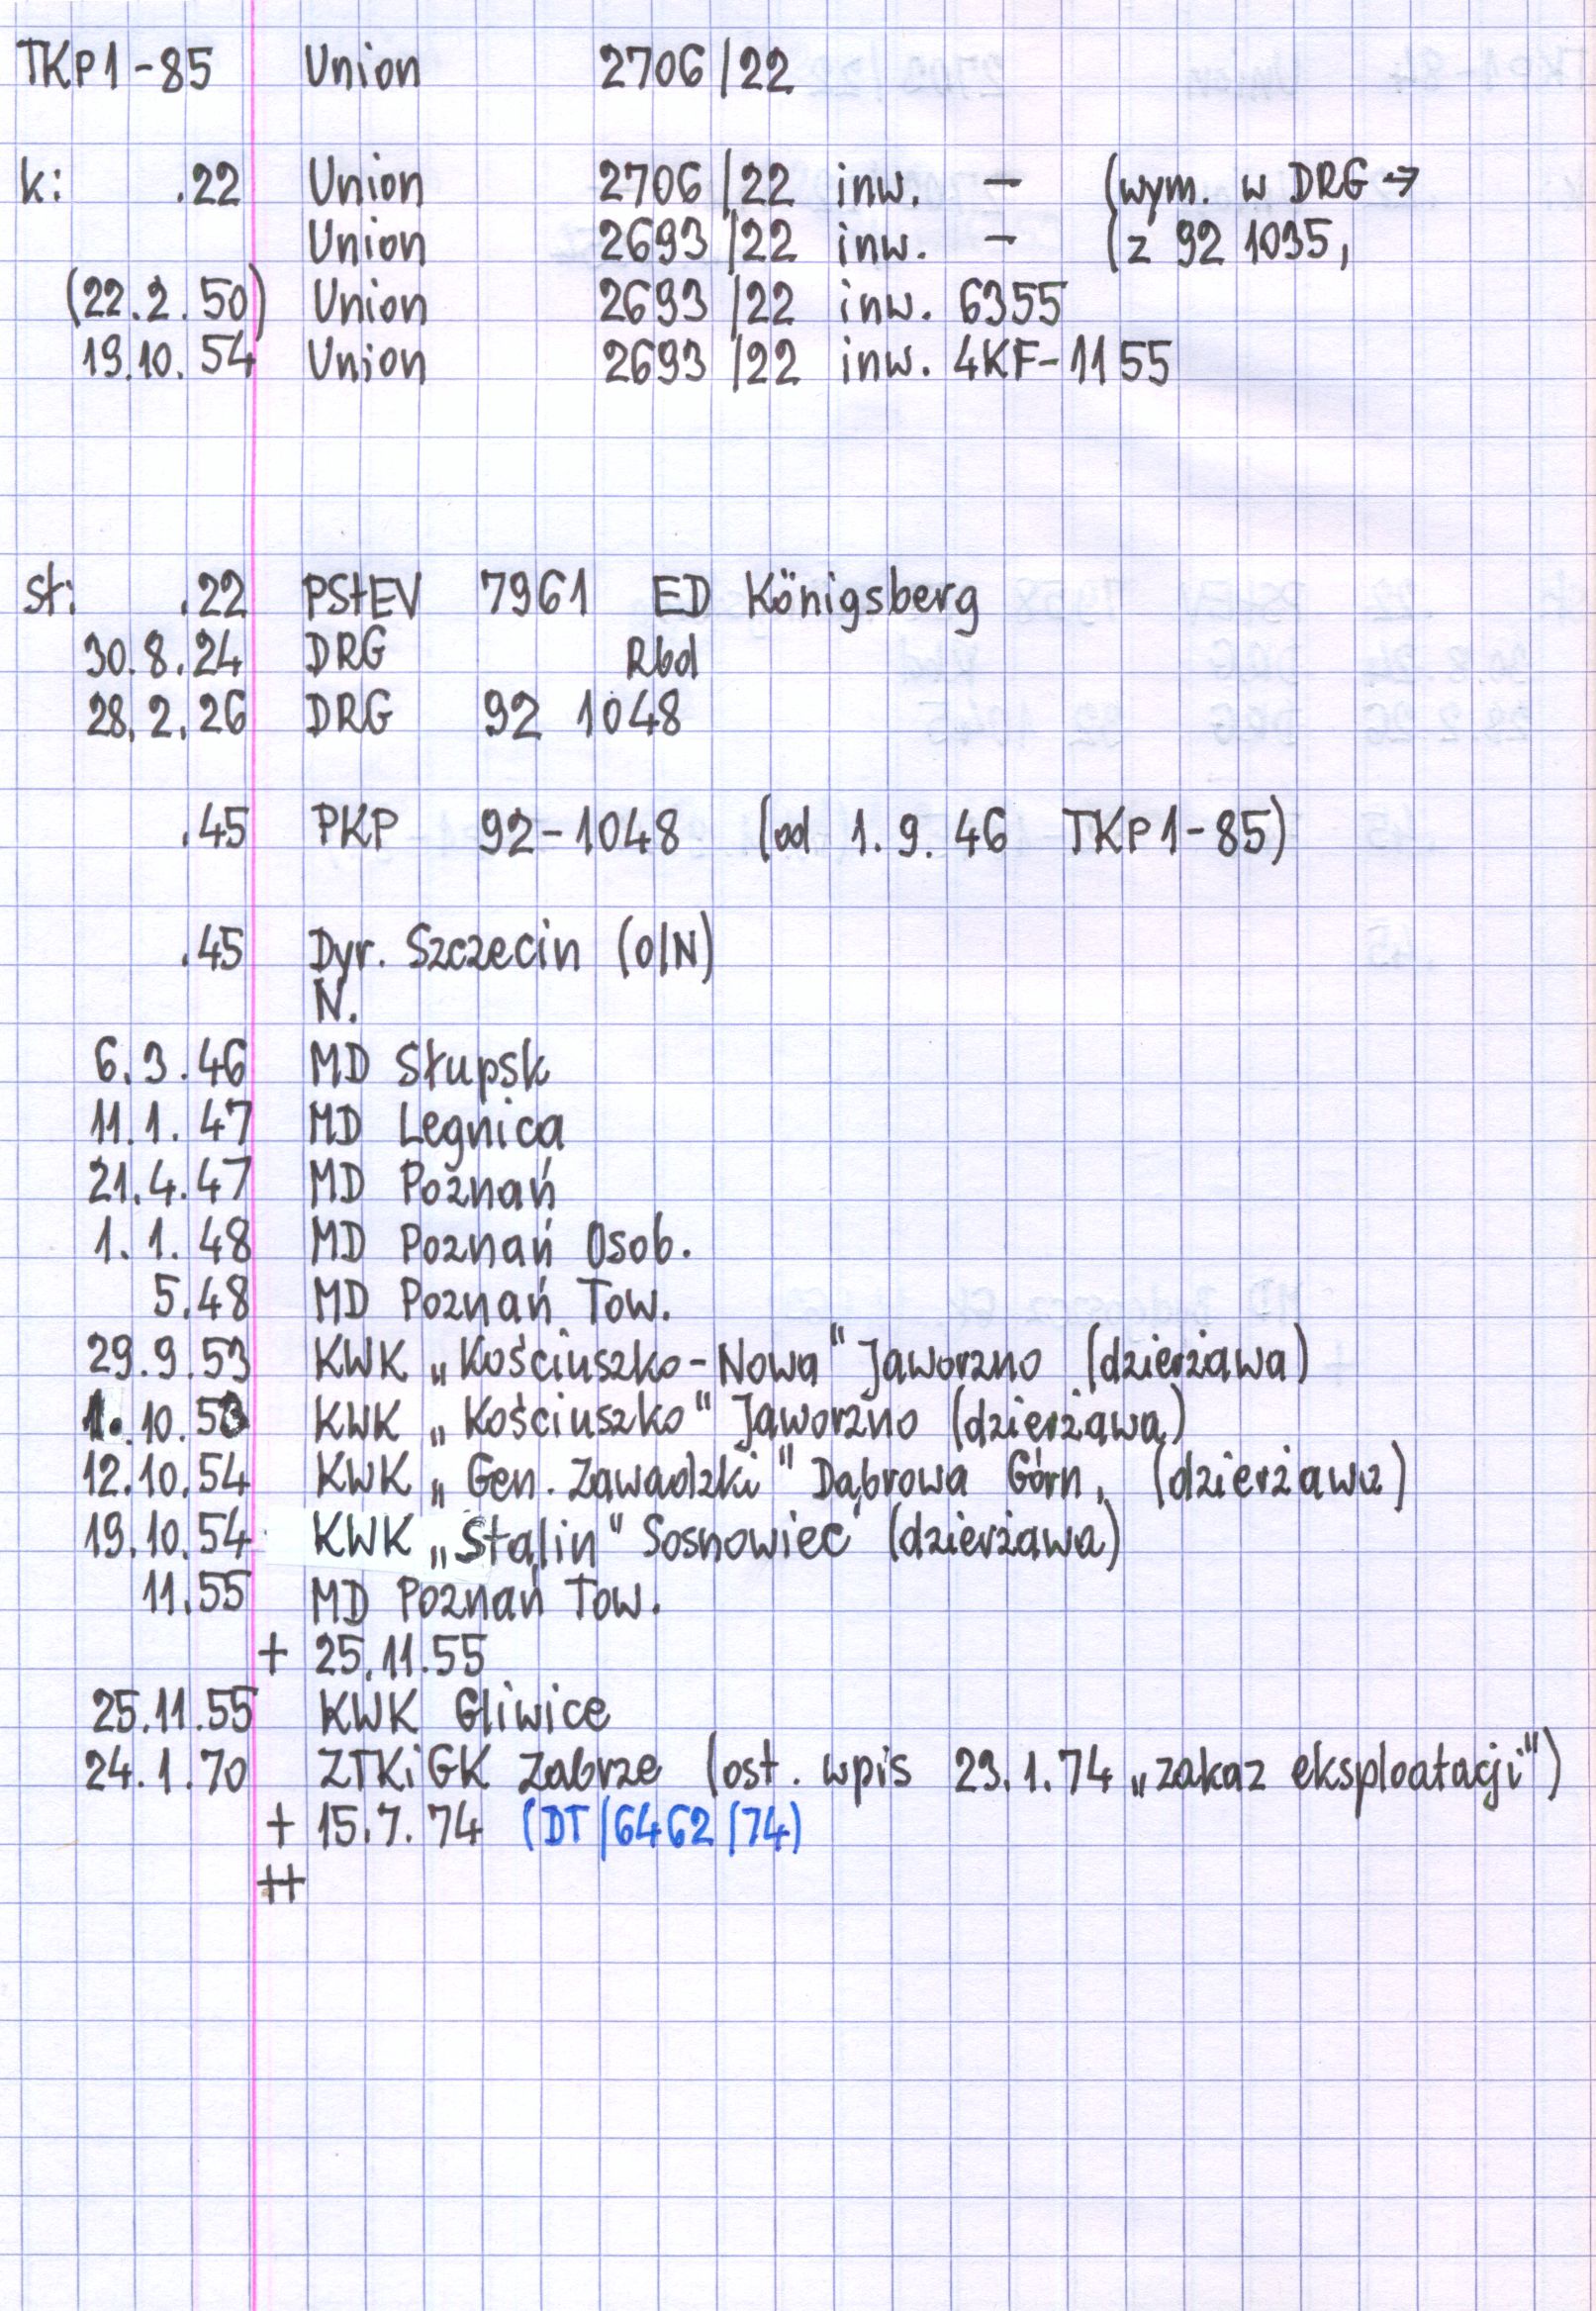 TKp1-85 Union 2706/22
k: .22 Union 2706/22 inw. - (wym. w DRG →
Union 2693/22 inw. - (z 92 1035,
(22.2.50) Union 2693/22 inw. 6355
19.10.54 Union 2693/22 inw. 4KF-1155
st: .22 PStEV 7961 ED Königsberg
30.8.24 DRG Rbd
28.2.26 DRG 92 1048
.45 PKP 92-1048 (od 1.9.46 TKp1-85)
.45 Dyr. Szczecin (O/N)
N.
6.3.46 MD Słupsk
11.1.47 MD Legnica
21.4.47 MD Poznań
1.1.48 MD Poznań Osob.
5.48 MD Poznań Tow.
29.9.53 KWK „Kościuszko-Nowa" Jaworzno (dzierżawa)
1.10.53 KWK „Kościuszko" Jaworzno (dzierżawa)
12.10.54 KWK „Gen. Zawadzki" Dąbrowa Górn. (dzierżawa)
19.10.54 KWK „Stalin" Sosnowiec (dzierżawa)
11.55 MD Poznań Tow.
+ 25.11.55
25.11.55 KWK Gliwice
24.1.70 ZTKiGK Zabrze (ost. wpis 23.1.74 „zakaz eksploatacji")
+ 15.7.74 (DT/6462/74)
++